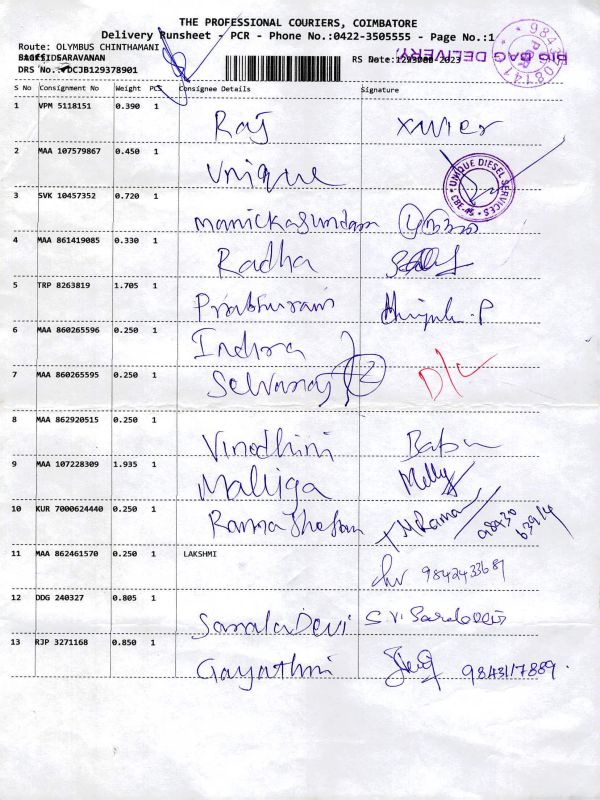 THE PROFESSIONAL COURIERS, COIMBATORE
Delivery Runsheet - PCR - Phone No.:0422-3505555 - Page No.:1
Route: OLYMBUS CHINTHAMANI
DRS No.: DCJB129378901
BIG BAG DELIVERY
S No Consignment No Weight PCS Consignee Details Signature
1 VPM 5118151 0.390 1 Raj Xavier
2 MAA 107579867 0.450 1 Unique
UNIQUE DIESEL SERVICES • CBE-45 •
3 SVK 10457352 0.720 1 Manickasundaram
4 MAA 861419085 0.330 1 Radha
5 TRP 8263819 1.705 1 Prabhuram
6 MAA 860265596 0.250 1 Indhra
7 MAA 860265595 0.250 1 Selvaraj 2 D/L
8 MAA 862920515 0.250 1 Vinodhini Babu
9 MAA 107228309 1.935 1 Malliga Melly
10 KUR 7000624440 0.250 1
98430 63914
11 MAA 862461570 0.250 1 LAKSHMI
12 DDG 240327 0.805 1 Sarala Devi
13 RJP 3271168 0.850 1 Gayathri 9843117889.